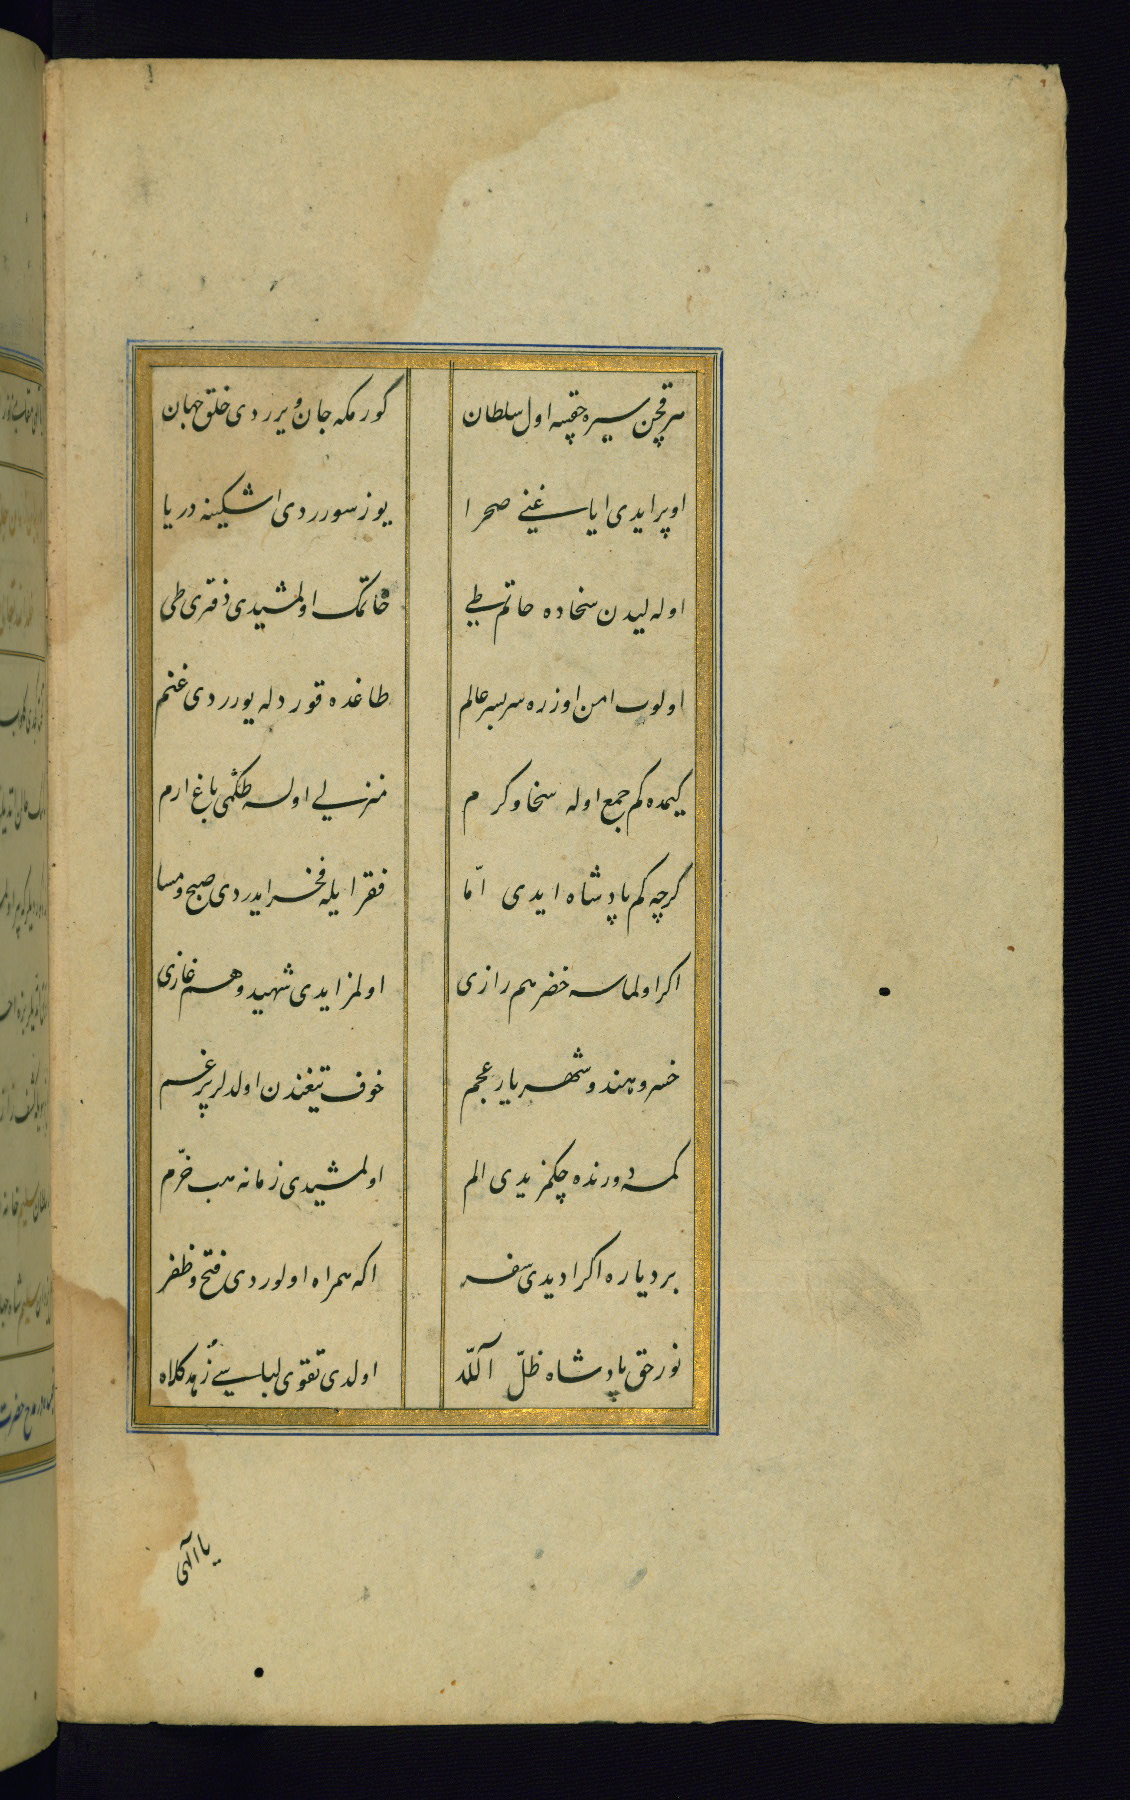 هر قچن سیره چقسه اول سلطان
گورمکه جان ویرردی خلق جهان
اوپر ایدی ایاسغینی صحرا
یوز سوررد‌ی اشکینه دریا
اوله‌لیدن سخاده حاتم طی
حاتمک اولمشیدی دفتری طی
اولوب امن اوزره سربسر عالم
طاغده قورد له یورردی غنم
کیمده کم جمع اوله سخا و کرم
منزلی اولسه طکمی باغ ارم
گرچه کم پادشاه ایدی امّا
فقر ایله فخر ایدردی صبح و مسا
اکر اولماسه خضر همرازی
اولمز ایدی شهید و هم غازی
خسرو هند و شهریار عجم
خوف تیغندن اولدلر پر غم
کمسه دورنده چکمزیدی الم
اولمشیدی زمانه هب خرّم
بر دیاره اکر ادیدی سفر
اکه همراه اولوردی فتح و ظفر
نور حق پادشاه ظلّ آللّه
اولدی تقوی لباسی زُهد کلاه
یا الهی